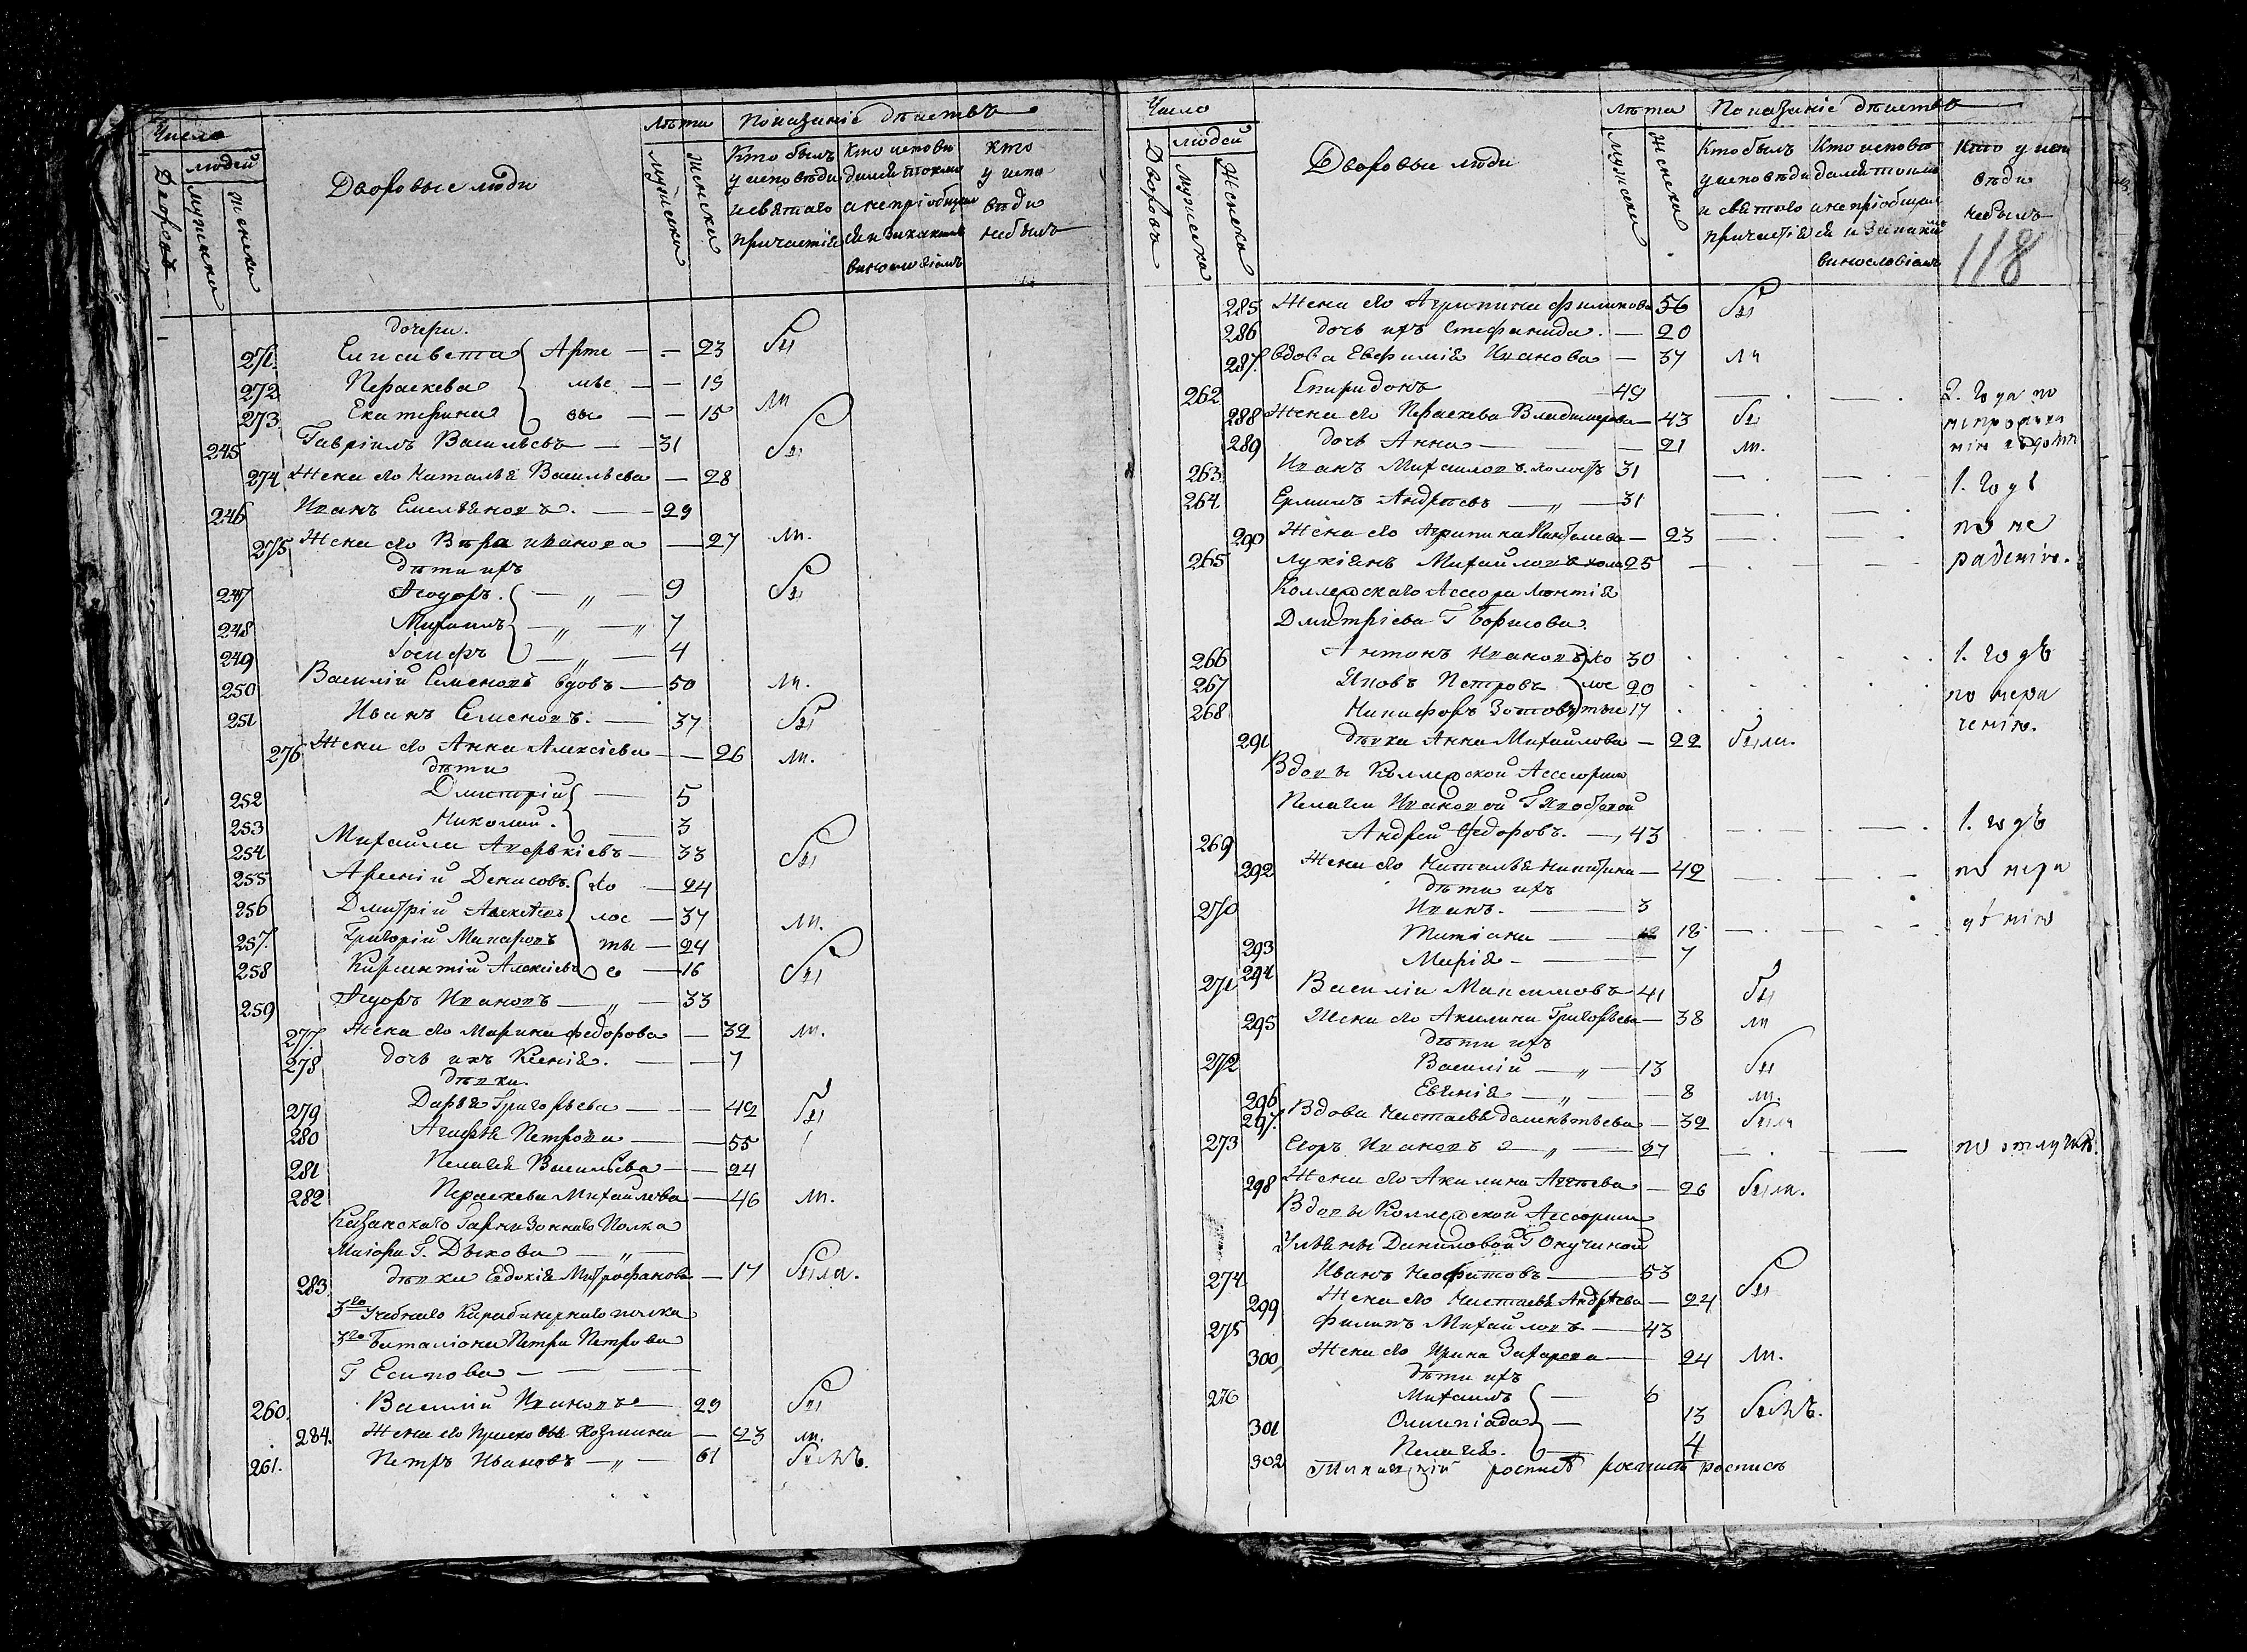 Число
людей
Дворовъ
мужеска
женска
Дворовые люди
лѣта
мужеска
женска
Показаніе дѣиствъ
Кто былъ у исповѣди и святаго причастія
Кто исповѣдался токмо а не пріобщался и за какимъ винословіемъ
кто у исповѣди не былъ
дочери.
271. Елисавета Арте — 23 бы
272 Параскева мье — 19
273 Екатерина вы — 15 ли
245 Гавріилъ Васильевъ — 31 бы
274 Жена его Наталья Васильева — 28
246 Иванъ Емельяновъ. — 29
275 Жена его Вѣра Иванова — 27 ли.
дѣти ихъ
247 Ѳеодоръ. — „ — 9 бы
248 Михаилъ — „ — „ 7
249 Іосифъ — „ — 4
250 Василій Семеновъ вдовъ — 50 ли.
251 Иванъ Семеновъ. — 37 бы
276 Жена его Анна Алексіева — 26 ли.
дѣти
252 Дмитрій — 5
253 Николай. — 3
254 Михаила — 33 бы
255 Арсеній Денисовъ. хо — 24
256 Дмитрій лос — 37 ли.
257. Григорій Макаровъ ты — 24
258 Алексіевъ е — 16 бы
259 Ѳедоръ Ивановъ — „ — 33
277. Жена его Марина Федорова — 32 ли.
278 дочь ихъ Ксенія. — 7
дѣвки.
279 Дарья Григорьева — 42 бы
280 Петрова — 55
281 Пелагея Васильева — 24
282 Параскева Михайлова — 46 ли.
Казанскаго Гарнизоннаго Полка
Маіора Г. Дыкова — „ —
283. дѣвка Евдокія Митрофанова — 17 была.
3го Учебнаго Карабинернаго полка
3го Баталіона Петра Петрова
Г Есипова —
260. Василій Ивановъ — 29 бы
284. Жена его Козмина — 23 ли.
261. Петръ Ивановъ — „ — 61 былъ.
Число
людей
Дворовъ
мужеска
женска
Дворовые люди
лѣта
мужеска
женска
Показаніе дѣиствъ
Кто былъ у исповѣди и святаго причастія
Кто исповѣдался токмо а не пріобщался и за какимъ винословіемъ
Кто у исповѣди не былъ
118
285 Жена его Агрипина Филипова 56 бы
286 дочь ихъ Стефанида. — 20
287. вдова Евфимія Иванова — 37 ли
262 Спиридонъ — 49 — . — . 2. года по
288 Жена его Параскева Владимерова — 43 бы
289 дочь Анна — 21 ли.
263. Иванъ Михаиловъ холостъ 31 — . — . 1. годъ
264 Ермилъ Андрѣевъ — „ — 31 — . — .
290 Жена его Агрипина — 23 — . — . по не
265 Лукіянъ Михайловъ холо 25 — . — . радѣнію.
Коллежскаго Ассесора
Дмитріева Г Борисова.
266 Антонъ Ивановъ хо 30 1. годъ
267 Яковъ Петровъ лос 20 по нера
268 Никифоръ Зотовъ тые 17 ченію.
291 дѣвка Анна Михайлова — 22 была.
Вдовы Коллежской Ассесорши
Пелагеи Ивановой Г
269 Андрей Ѳедоровъ. —, 43 — . — . 1. годъ
292 Жена его Наталья Никитина — 42 — . — . по нера
дѣти ихъ
270 Иванъ. — 3 дѣнію
293 Татіана — 18 — . — .
294 Марія — 7
271 Василій Максимовъ 41 бы
295 Жена его Акилина Григорьева — 38 ли
дѣти ихъ
272 Василій — „ — 13 бы
296 Евгенія — „ — 8 ли.
297. Вдова Настасья — 32 была
273 Егоръ Ивановъ — „ — 27 — . — по отлучкѣ.
298 Жена его Акилина — 26 была.
Вдовы Коллежской Ассесорши
Ульяны Даниловой Г Окучиной
274 Иванъ Неофитовъ — 53 бы
299 Жена его Настасья Андрѣева — 24
275 Филипъ Михайловъ — 43
300 Жена его Ирина Захарова — 24 ли.
дѣти ихъ
276 Михаилъ — 6
301 Олимпіада — 13 былъ.
302 Пелагея. — 4
роспись роспись роспись